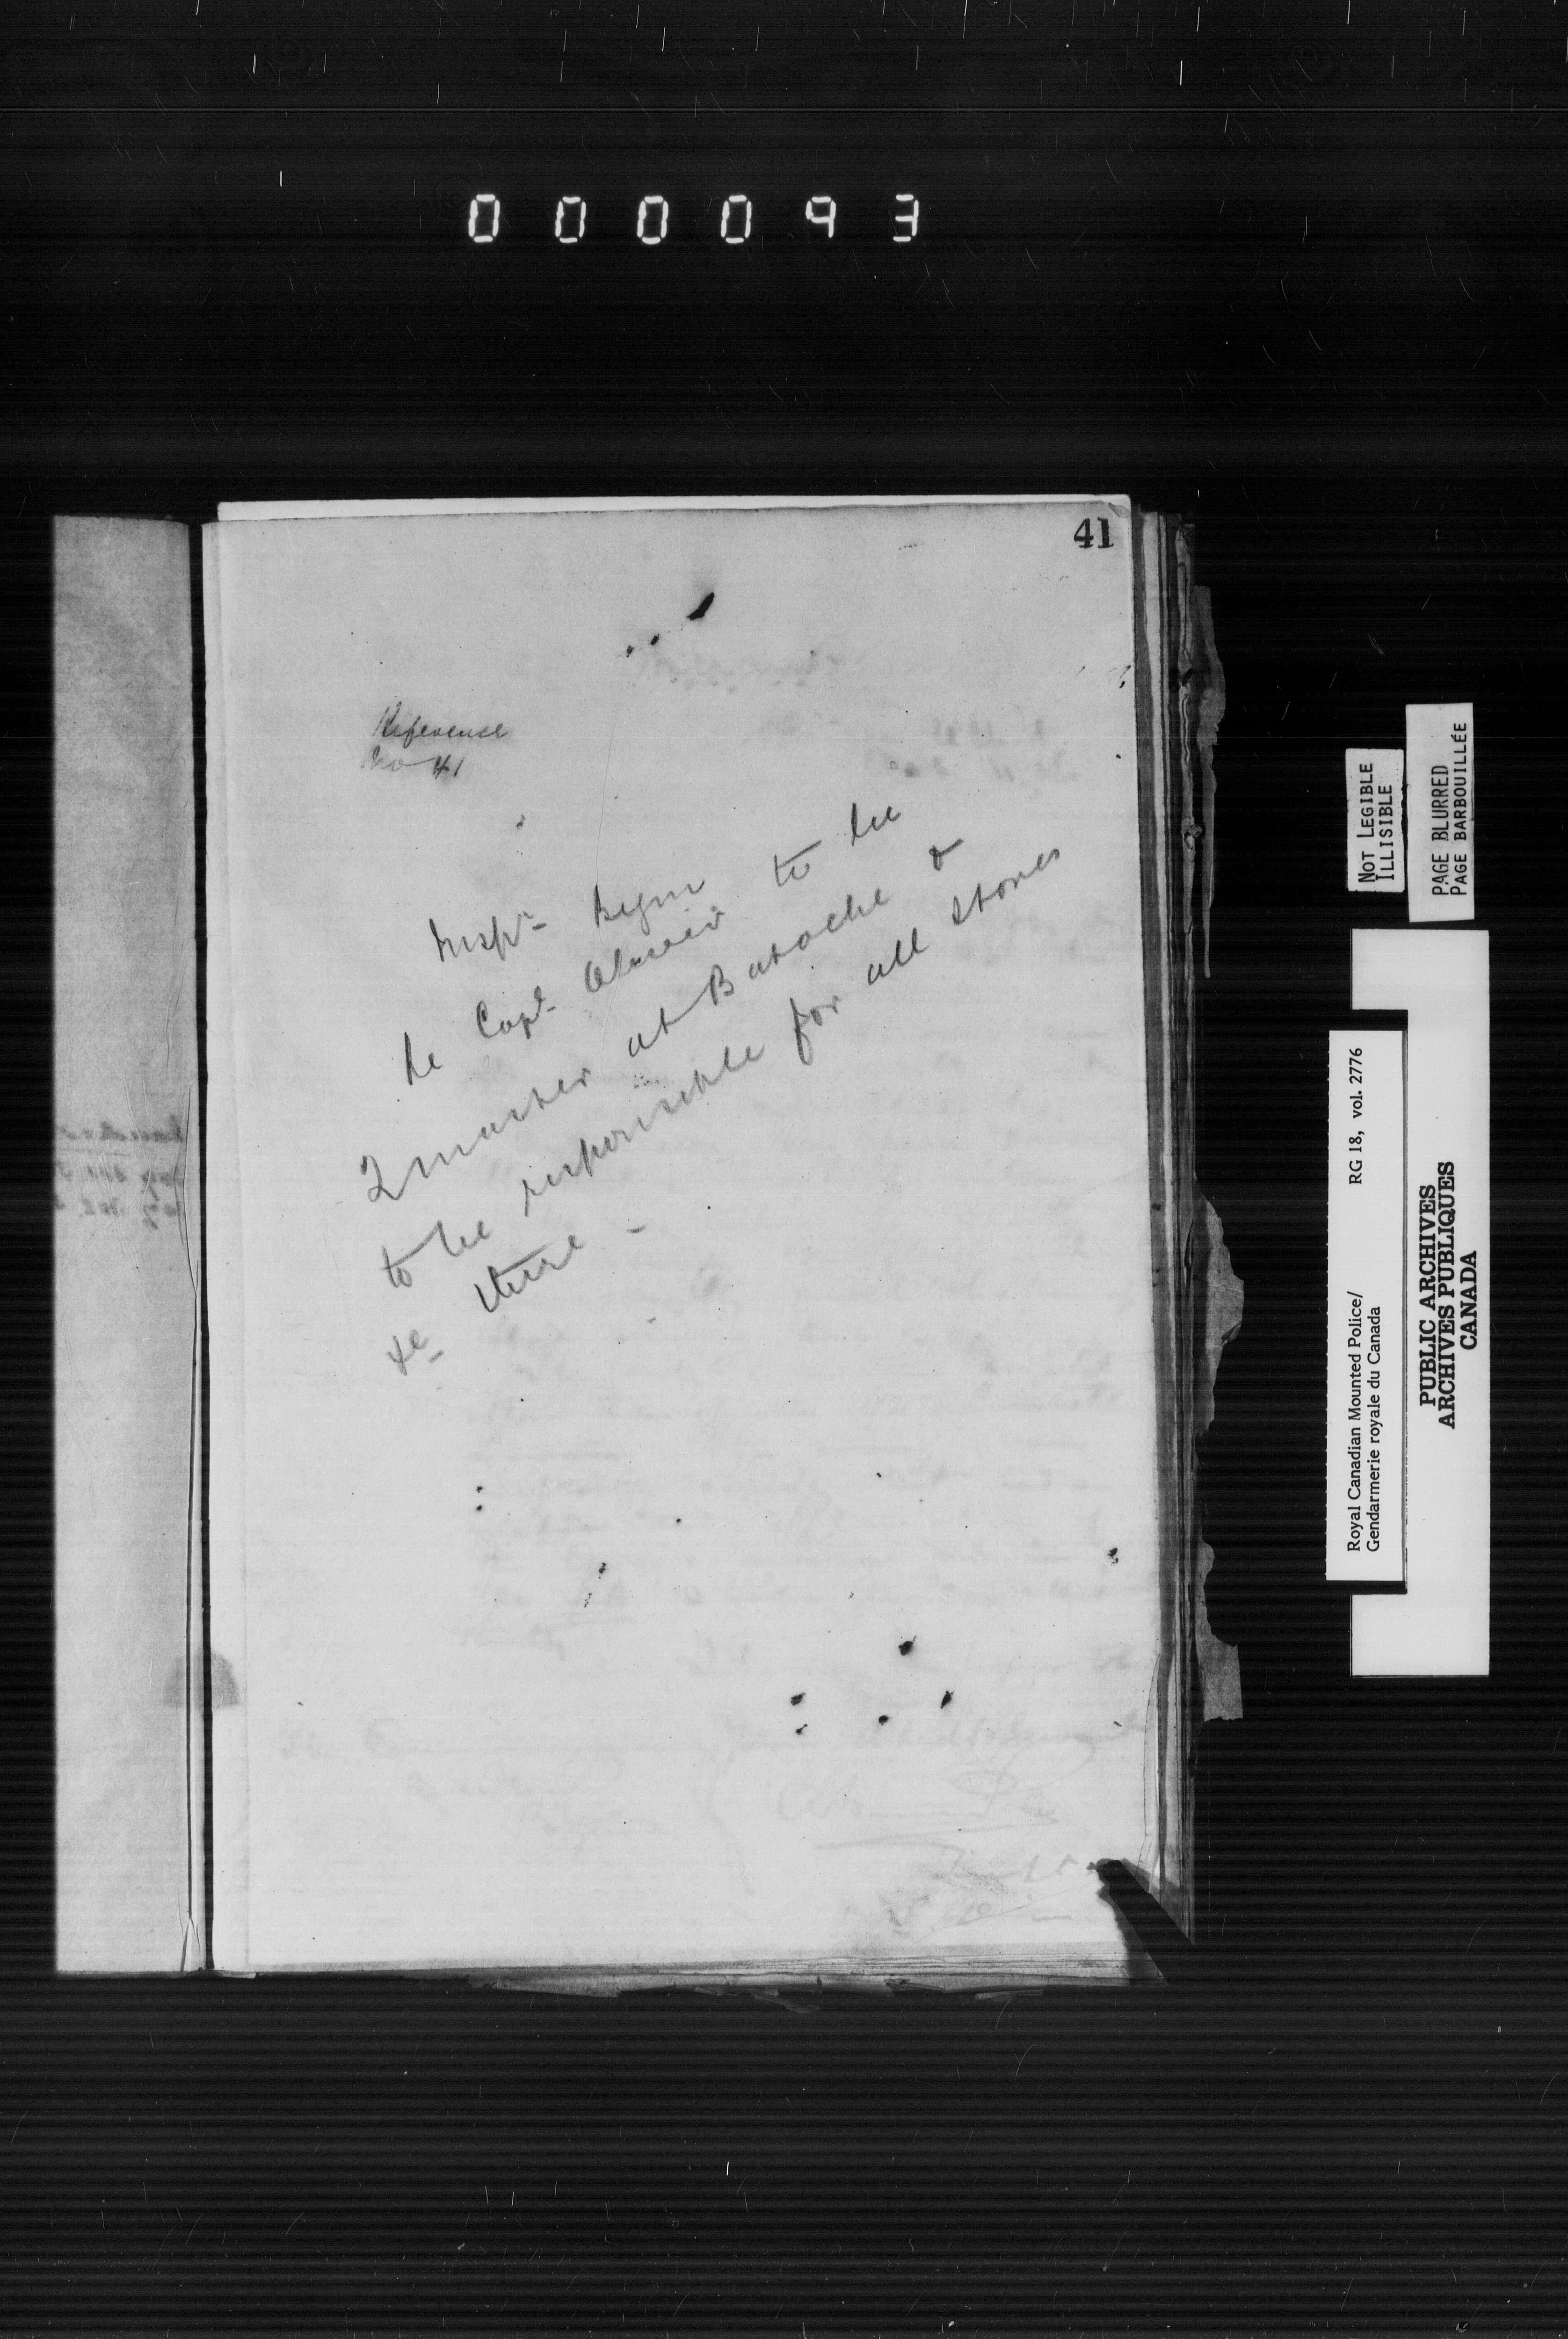 000093
41
Reference
No 41
Inspr- Begin to be
he Capt- to
Qmaster at Batoche &
to be responsible for all stores
&c- there -
NOT LEGIBLE
ILLISIBLE
PAGE BLURRED
PAGE BARBOUILLÉE
Royal Canadian Mounted Police/
Gendarmerie royale du Canada
RG 18, vol. 2776
PUBLIC ARCHIVES
ARCHIVES PUBLIQUES
CANADA